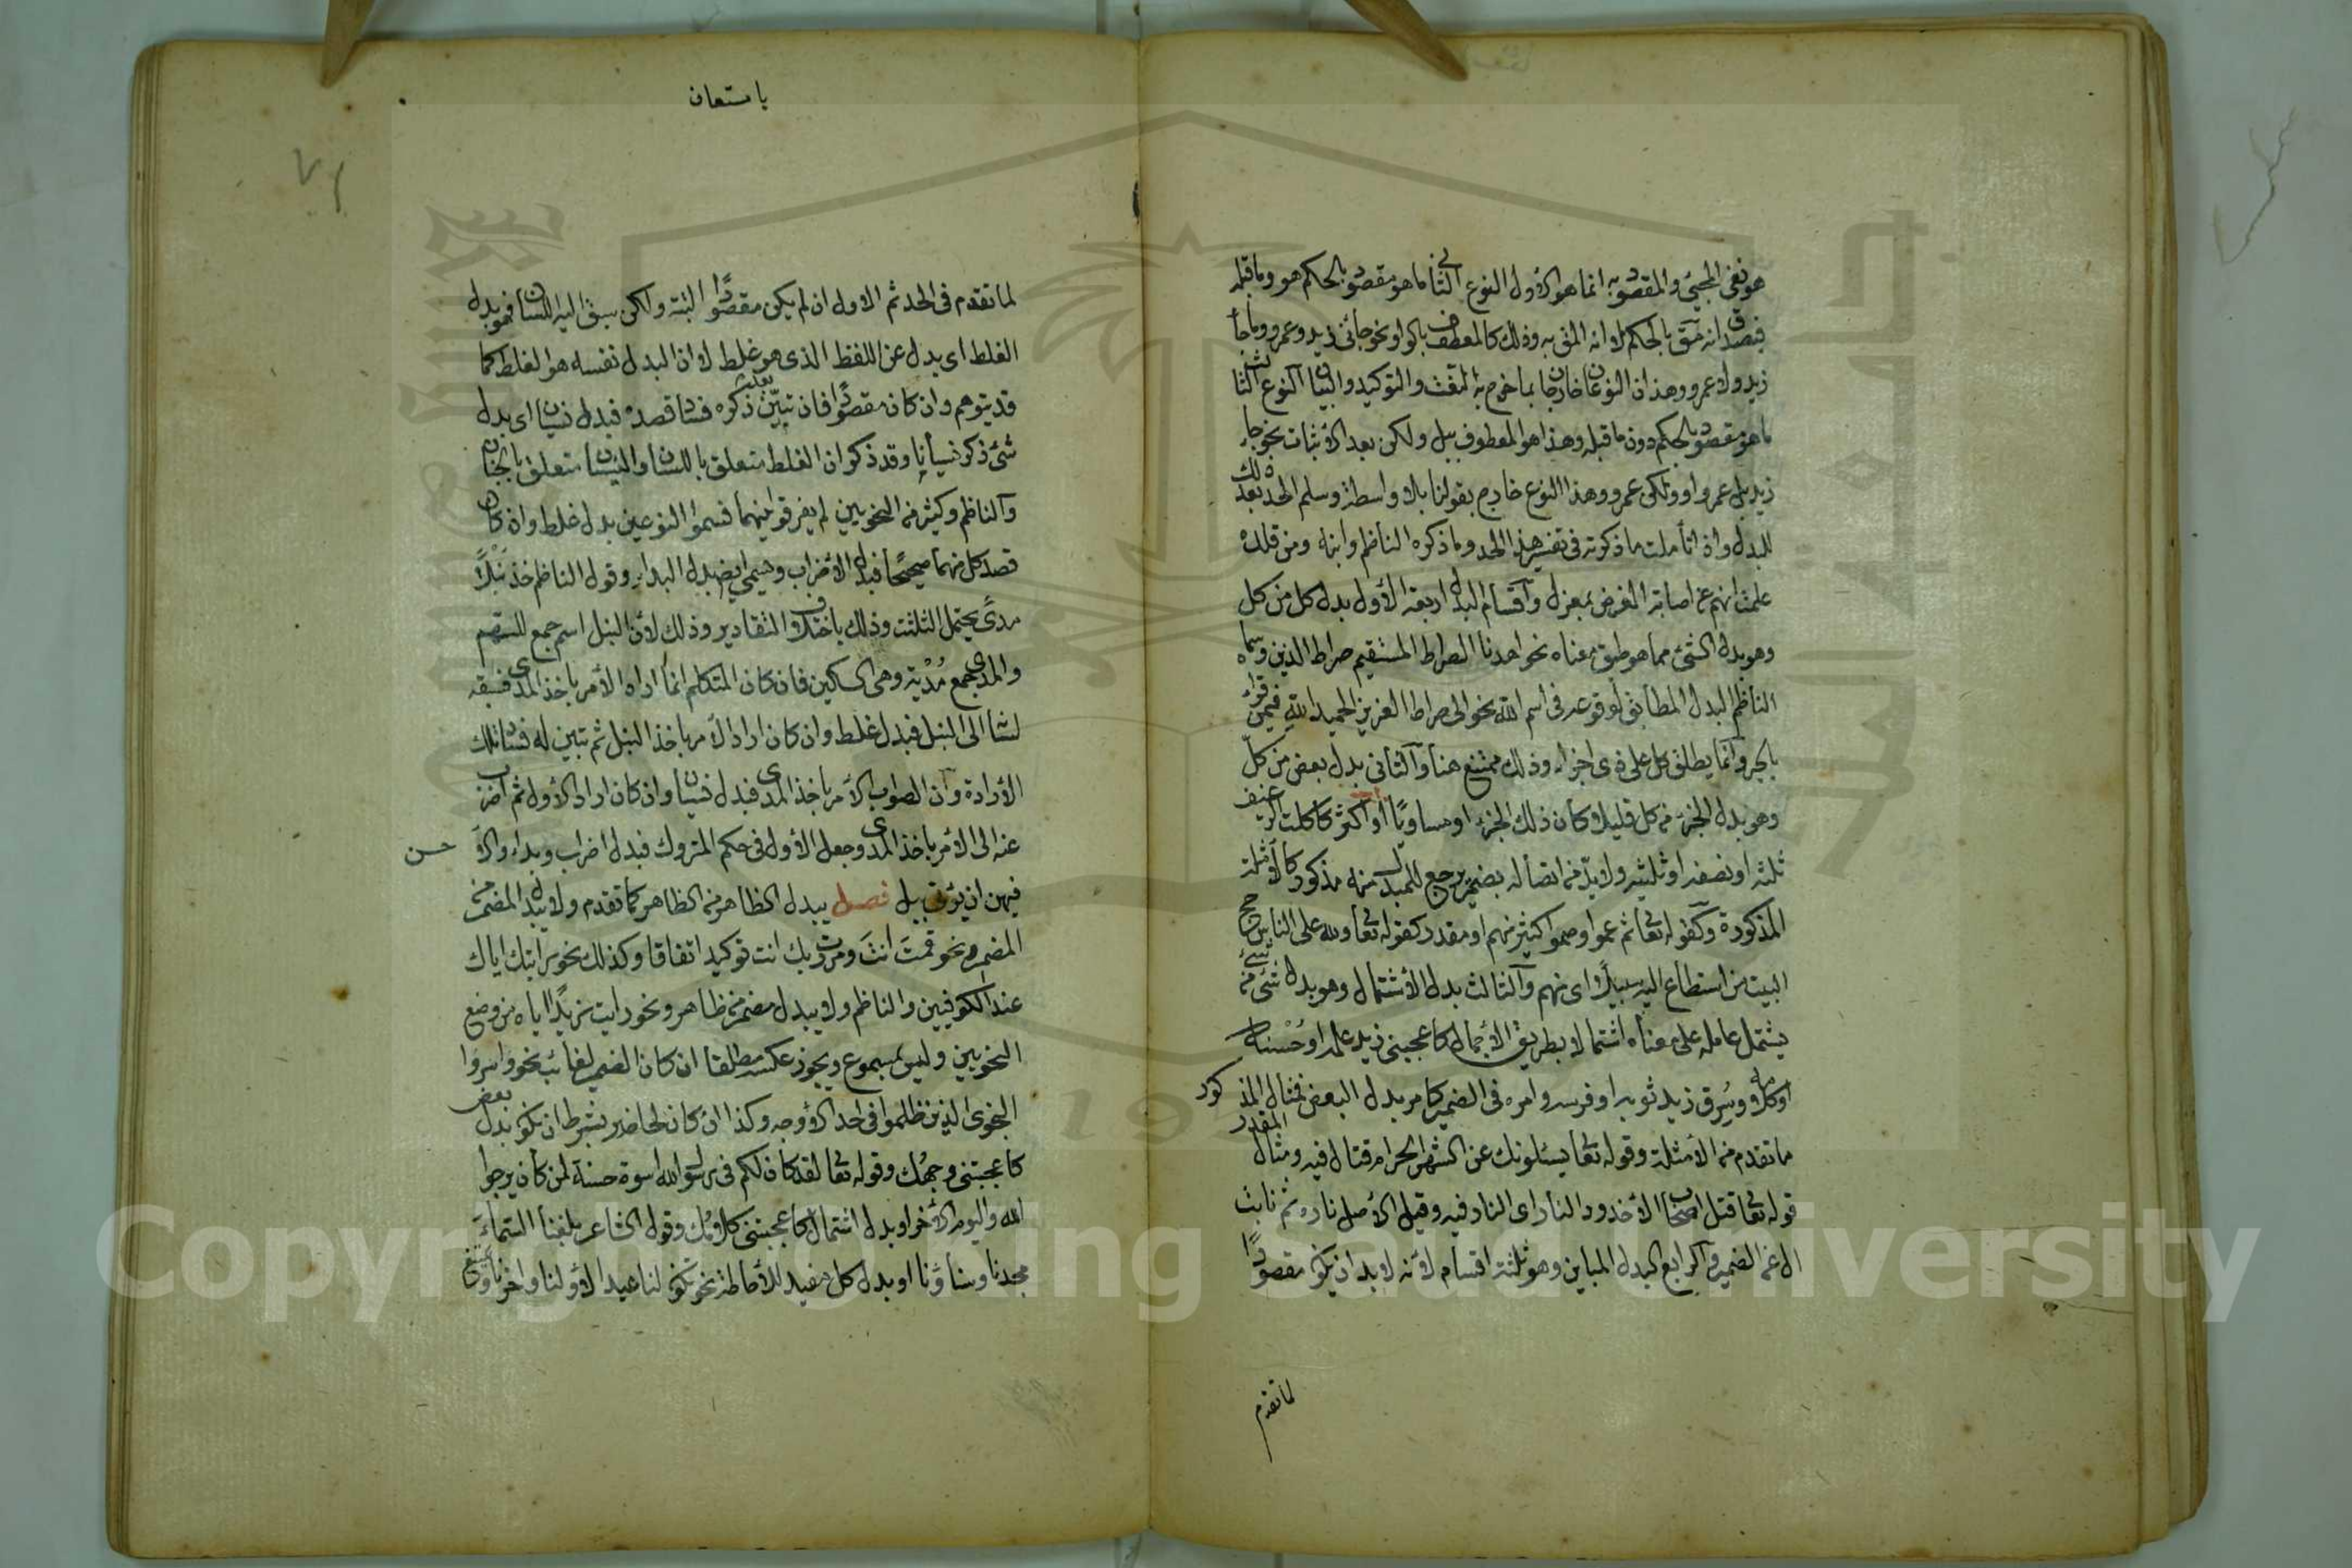 هو نفى المجيئ والمقصود به انما هو الاول النوع الثانى ما هو مقصود بالحكم هو وما قبله
فيصدق انه مقصود بالحكم لا انه المقصود به وذلك كالمعطوف بالواو نحو جائنى زيد وعمرو وما جاء
زيد ولا عمرو وهذان النوعان خارجان بما خرج به النعت والتوكيد والبيان النوع الثالث
ما هو مقصود بالحكم دون ما قبله وهذا هو المعطوف ببل ولكن بعد الاثبات نحو جاء
زيد بل عمرو او ولكن عمرو وهذا النوع خارج بقولنا بلا واسطة وسلم الحد بعد ذلك
للبدل واذا تأملت ما ذكرته فى تفسير هذا الحد وما ذكره الناظم وابنه ومن قلده
علمت انهم عن اصابة الغرض بمعزل وأقسام البدل اربعة الأول بدل كل من كل
وهو بدل الشئ مما هو طبق معناه نحو اهدنا الصراط المستقيم صراط الذين وسماه
الناظم البدل المطابق لوقوعه فى اسم الله نحو الى صراط العزيز الحميد الله فيمن قرأ
بالجر وانما يطلق كل على ذى اجزاء وذلك ممتنع هنا والثانى بدل بعض من كل
وهو بدل الجزء من كله قليلا كان ذلك الجزء او مساويًا أو اكثر كاكلت الرغيف
ثلثه او نصفه او ثلثيه ولا بد من اتصاله بضمير يرجع للمبدل منه مذكور كالامثلة
المذكورة وكقوله تعا ثم عموا وصموا كثير منهم او مقدر كقوله تعا ولله على الناس حج
البيت من استطاع اليه سبيلاً اى منهم والثالث بدل الأشتمال وهو بدل شئ من شئ
يشتمل عامله على معناه اشتمالا بطريق الاجمال كاعجبنى زيد علمه او حُسْنه
او كلامه وسُرق زيد ثوبه او فرسه وامره فى الضمير كامر بدل البعض فمثال المذكور
ما تقدم من الأمثلة وقوله تعا يسئلونك عن الشهر الحرام قتال فيه ومثال المقدر
قوله تعا قتل اصحاب الاخدود النار اى النار فيه وقيل الاصل ناره ثم نابت
ال عن الضمير والرابع البدل المباين وهو ثلثة اقسام لانه لا بد ان يكون مقصودًا
لما تقدم
يا مستعان
لما تقدم فى الحد ثم الاول ان لم يكن مقصودًا البتة ولكن سبق اليه اللسان فهو بدل
الغلط اى بدل عن اللفظ الذى هو غلط لا ان البدل نفسه هو الغلط كما
قد يتوهم وان كان مقصودًا فان تبيّن بعد ذكره فساد قصده فبدل نسيان اى بدل
شئ ذكر نسيانا وقد ذكر ان الغلط متعلق باللسان والنسيان متعلق بالجنان
والناظم وكثير من النحويين لم يفرقوا بينهما فسموا النوعين بدل غلط وان كان
قصد كل منهما صحيحًا فبدل الأضراب ويسمى ايض بدل البداء وقول الناظم خذ نَبْلًا
مدىً يحتمل الثلثة وذلك باختلاف التقادير وذلك لأن النبل اسم جمع للسهم
والمدى جمع مُدْية وهى السكين فان كان المتكلم انما اراد الأمر باخذ المدى فسبقه
لسانه الى النبل فبدل غلط وان كان اراد الامر باخذ النبل ثم تبين له فساد تلك
الأرادة وان الصواب الأمر باخذ المدى فبدل نسيان وان كان اراد الأول ثم اضرب
عنه الى الأمر باخذ المدى وجعل الأول فى حكم المتروك فبدل اضراب وبداء والاحسن
فيهن ان يؤتى ببل فصل يبدل الظاهر من الظاهر كما تقدم ولا يبدل المضمر من
المضمر ونحو قمتَ انتَ ومررت بك انت توكيد اتفاقا وكذلك نحو رايتك اياك
عند الكوفيين والناظم ولا يبدل مضمر من ظاهر ونحو رايت زيدًا اياه من وضع
النحويين وليس بمسموع ويجوز عكسه مطلقا ان كان الضمير لغائب نحو واسروا
النجوى الذين ظلموا فى احد الأوجه وكذا ان كان لحاضر بشرط ان يكون بدل بعض
كاعجبتنى وجهُك وقوله تعا لقد كان لكم فى رسول الله اسوة حسنة لمن كان يرجوا
الله واليوم الأخر او بدل اشتمال كاعجبتنى كلامُك وقول الشاعر بلغنا السماءَ
مجدنا وسناؤنا او بدل كل مفيد للأحاطة نحو تكون لنا عيدا لاولنا واخرنا